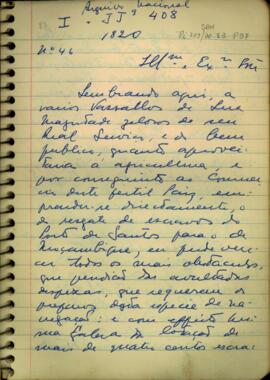 Arquivo Nacional
I JJ 408
1820
Nº 46
Illmº. Exmº. Snr.
Lembrando aqui, a
varios Vassallos de Sua
Magestade zelosos de seu
Real Serviço, e do bem
publico, quanto aprovei-
tava a agricultura, e
por conseguinte ao Commer-
cio deste fertil Paiz, em-
prender-se directamente, o
resgate de escravos do
Porto de Santos para o de
Moçambique, em pode ven-
cer todos os mais obstaculos,
que pendião das avultadas
despezas, que requerem os
desta especie de na-
vegação: e com effeito hu-
ma Galera da lotação de
mais de quatro centos escra-